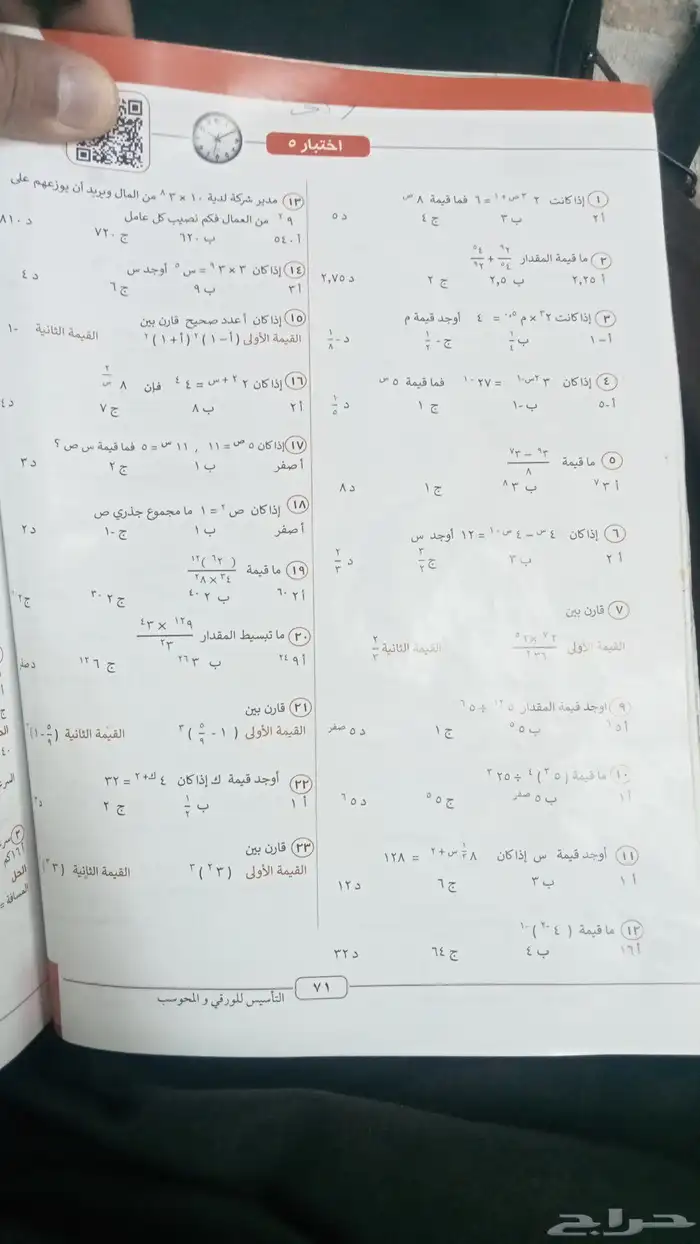 اختبار ٥
١ إذا كانت ٢^(٣س+١) = ٦ فما قيمة ٨^س
أ ٢ ب ٣ ج ٤ د ٥
٢ ما قيمة المقدار
أ ٢,٢٥ ب ٢,٥ ج ٢ د ٢,٧٥
٣ إذا كانت = ٤ أوجد قيمة م
أ -١ ب ١/٤ ج -١/٢ د -١/٨
٤ إذا كان ٣ = ٢٧ فما قيمة ٥^س
أ -٥ ب -١ ج ١ د ١/٥
٥ ما قيمة
أ ٣^٧ ب ٣^٨ ج ١ د ٨
٦ إذا كان ٤^س - ٤^(س-١) = ١٢ أوجد س
أ ٢ ب ٣ ج ٣/٢ د ٢/٣
٧ قارن بين
القيمة الأولى القيمة الثانية ٢/٣
٩ أوجد قيمة المقدار ٥^١٢ ÷ ٥^٦
أ ٥^٦ ب ٥^٥ ج ١ د ٥^صفر
١٠ ما قيمة
أ ١ ب ٥^صفر ج ٥^٥ د ٥^٦
١١ أوجد قيمة س إذا كان = ١٢٨
أ ١ ب ٣ ج ٦ د ١٢
١٢ ما قيمة (٤^-٢)^-١
أ ١٦ ب ٤ ج ٦٤ د ٣٢
١٣ مدير شركة لدية ١٠ × ٣^٨ من المال ويريد أن يوزعهم على
٩^٢ من العمال فكم نصيب كل عامل
أ ٥٤٠ ب ٦٢٠ ج ٧٢٠ د ٨١٠
١٤ إذا كان ٣ × ٣^٩ = س^٥ أوجد س
أ ٣ ب ٩ ج ٦ د ٤
١٥ إذا كان أ عدد صحيح قارن بين
القيمة الأولى (أ-١)^٢ (أ+١)^٢ القيمة الثانية -١
١٦ إذا كان ٢^(٢+س) = ٤^٤ فإن ٨^(٢/س)
أ ٢ ب ٨ ج ٧ د ٤
١٧ إذا كان ٥^ص = ١١ , ١١^س = ٥ فما قيمة س ص ؟
أ صفر ب ١ ج ٢ د ٣
١٨ إذا كان ص^٢ = ١ ما مجموع جذري ص
أ صفر ب ١ ج -١ د ٢
١٩ ما قيمة
أ ٢^٦٠ ب ٢^٤٠ ج ٢^٣٠
٢٠ ما تبسيط المقدار
أ ٩^٢٤ ب ٣^٢٦ ج ٦^١٢
٢١ قارن بين
القيمة الأولى (١ - ٥/٩)^٣ القيمة الثانية
٢٢ أوجد قيمة ك إذا كان ٤^(ك+٢) = ٣٢
أ ١ ب ١/٢ ج ٢
٢٣ قارن بين
القيمة الأولى (٣^٢)^٣ القيمة الثانية
٧١
التأسيس للورقي و المحوسب
حراج